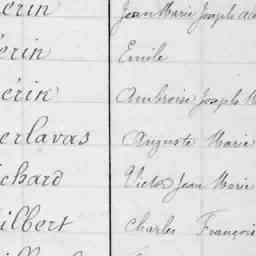 erin Jean Marie Joseph
érin Emile
érin Ambroise Joseph
erlavas Auguste Marie
chard Victor Jean Marie
ilbert Charles François